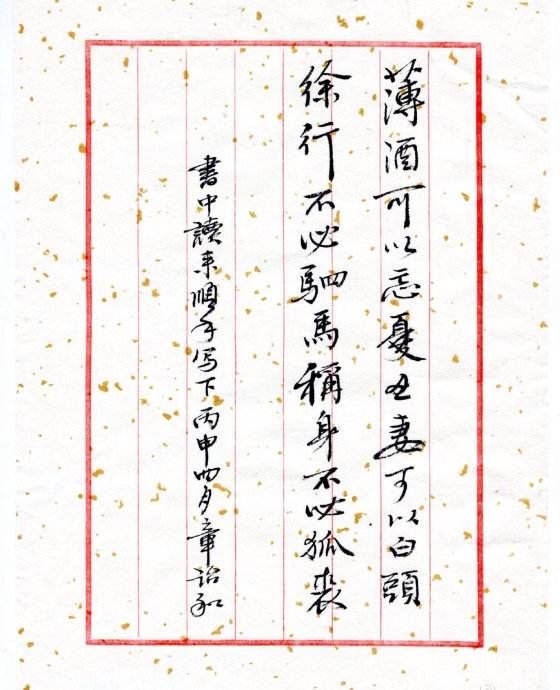 薄酒可以忘憂丑妻可以白頭
徐行不必駟馬稱身不必狐裘
書中讀來順手写下丙申四月章詒和